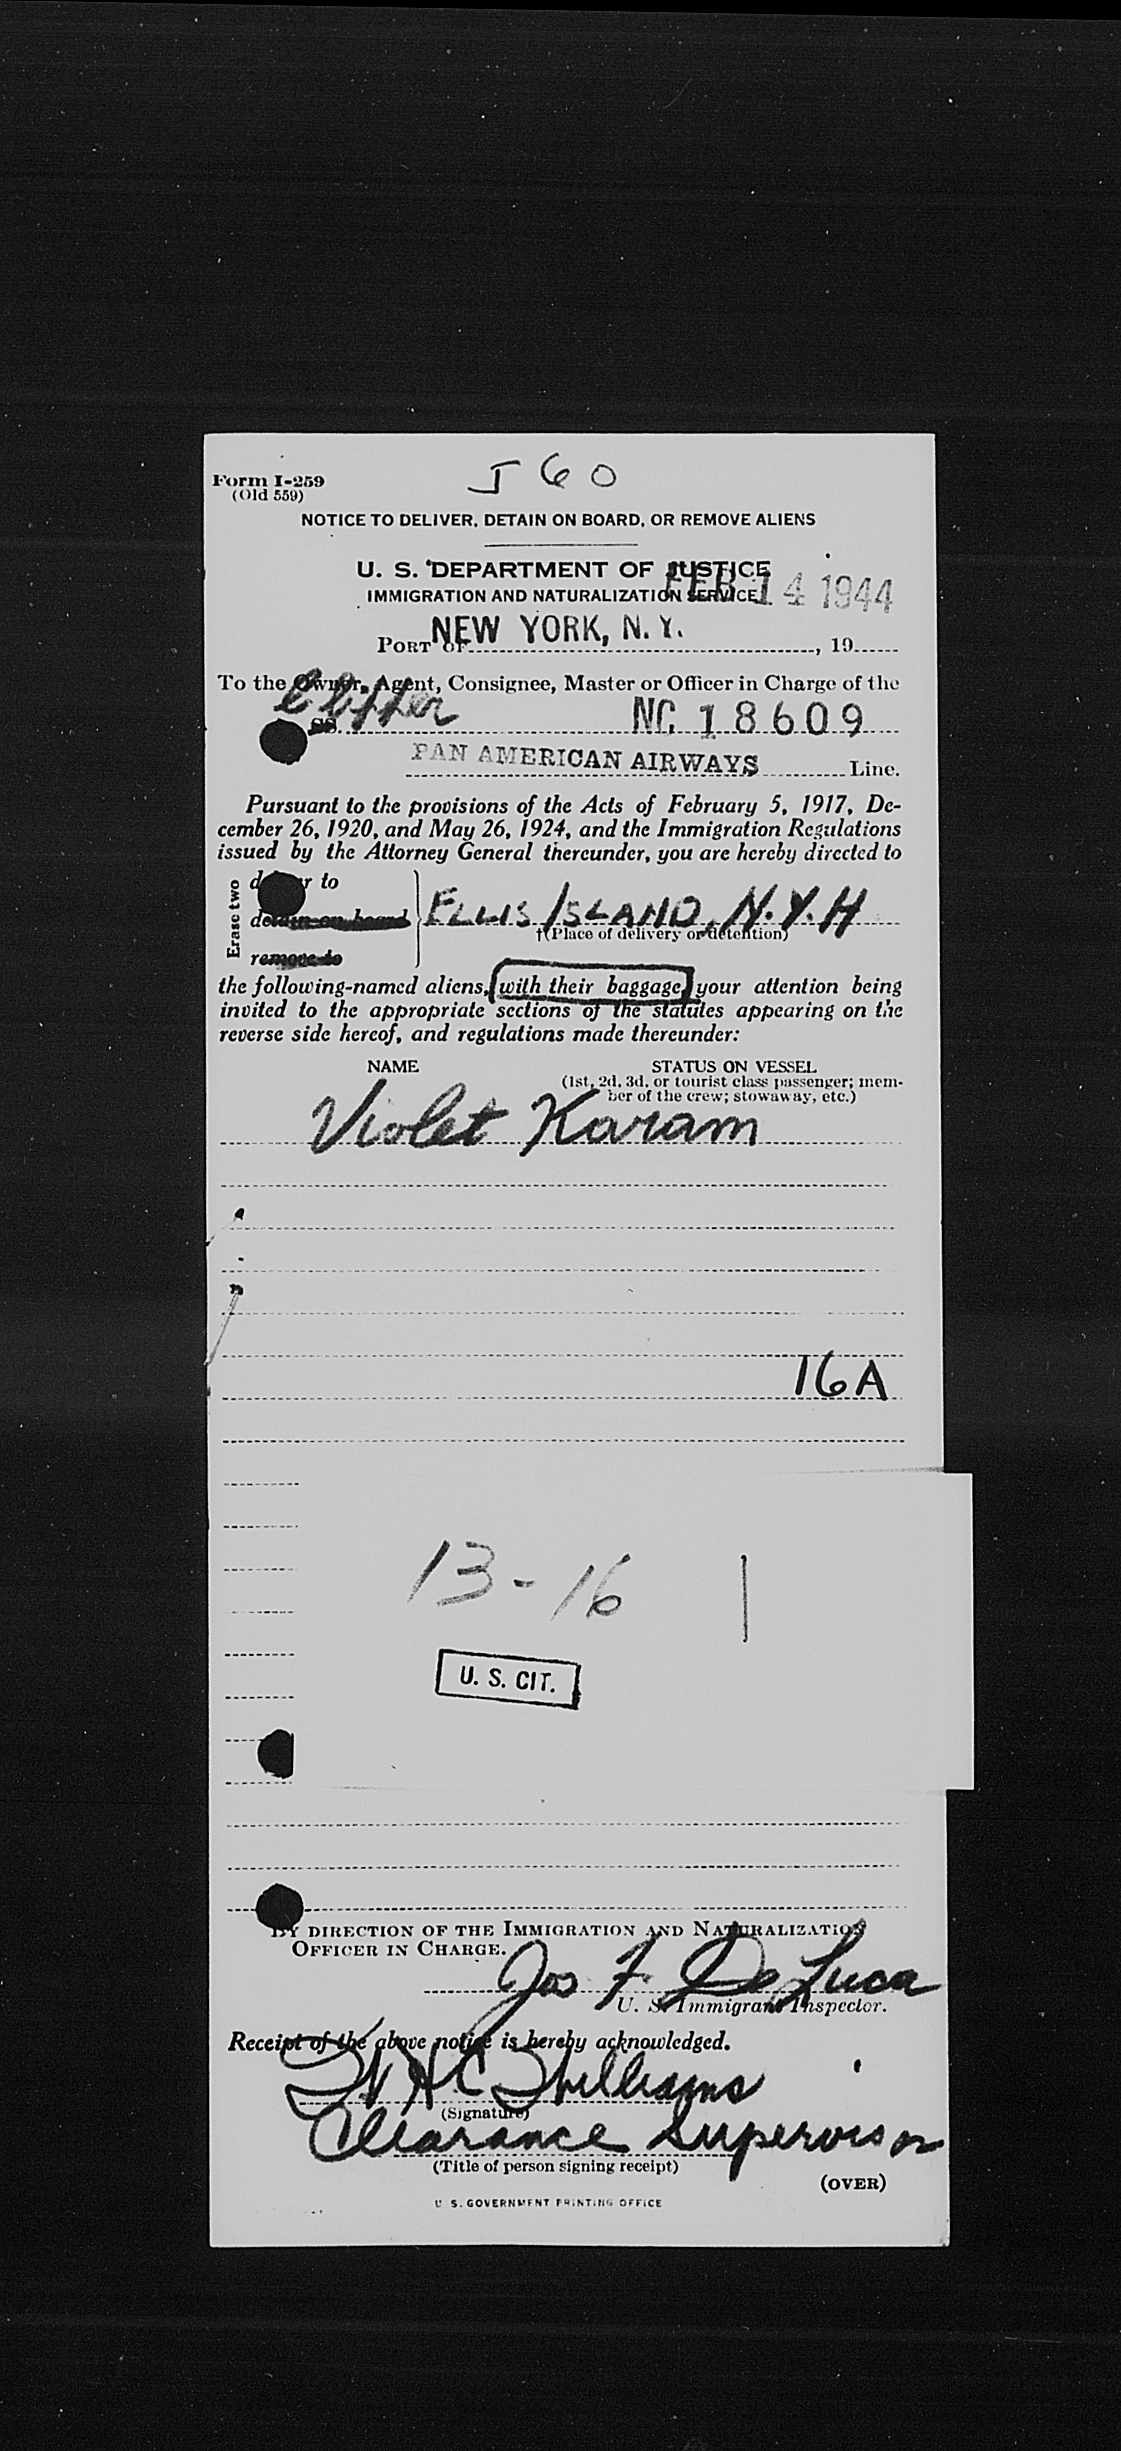 Form I-259
(Old 559)
J 60
NOTICE TO DELIVER, DETAIN ON BOARD, OR REMOVE ALIENS
U. S. DEPARTMENT OF JUSTICE
IMMIGRATION AND NATURALIZATION SERVICE
FEB 14 1944
PORT OF NEW YORK, N. Y. , 19
To the Owner, Agent, Consignee, Master or Officer in Charge of the
Clipper
SS. NC 18609
PAN AMERICAN AIRWAYS Line.
Pursuant to the provisions of the Acts of February 5, 1917, De-
cember 26, 1920, and May 26, 1924, and the Immigration Regulations
issued by the Attorney General thereunder, you are hereby directed to
Erase two
deliver to
detain on board
remove to
ELLIS ISLAND, N.Y.H
†(Place of delivery or detention)
the following-named aliens, with their baggage, your attention being
invited to the appropriate sections of the statutes appearing on the
reverse side hereof, and regulations made thereunder:
NAME STATUS ON VESSEL
(1st, 2d, 3d, or tourist class passenger; mem-
ber of the crew; stowaway, etc.)
Violet Karam
16A
13-16
U. S. CIT.
BY DIRECTION OF THE IMMIGRATION AND NATURALIZATION
OFFICER IN CHARGE.
Jos F. De Luca
U. S. Immigrant Inspector.
Receipt of the above notice is hereby acknowledged.
Williams
(Signature)
Clearance Supervisor
(Title of person signing receipt)
(OVER)
U. S. GOVERNMENT PRINTING OFFICE